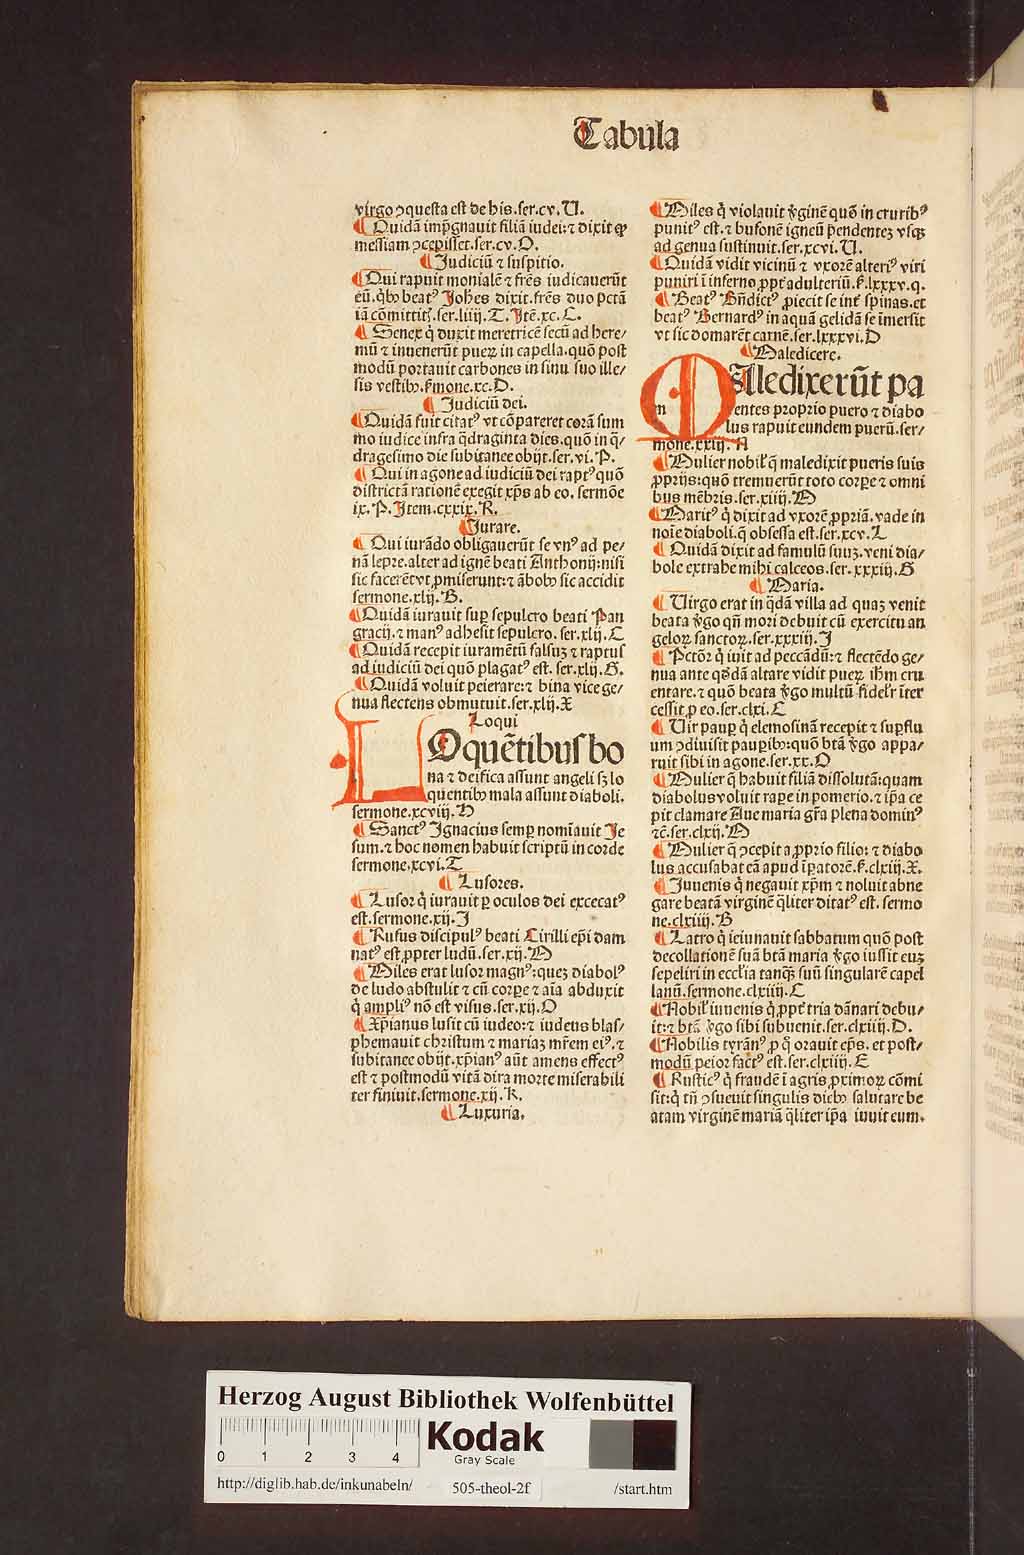 Tabula
virgo ꝯquesta est de his.ser.cv.U.
¶ Quidā imp̄gnauit filiā iudei:⁊ dixit ꝙ
messiam ꝯcepisset.ser.cv.O.
¶ Judiciū ⁊ suspitio.
¶ Qui rapuit monialē ⁊ fr̄es iudicauerūt
eū.q̄bꝫ beatꝰ Joh̄es dixit.fr̄es duo pctā
iā cōmittit᷑.ser.liiij.T.Itē.xc.C.
¶ Senex q̇ duxit meretricē secū ad here/
mū ⁊ inuenerūt pueꝝ in capella.quō post
modū portauit carbones in sinu suo ille/
sis vestibꝫ.s̄mone.xc.D.
¶ Judiciū dei.
¶ Quidā fuit citatꝰ vt cōpareret corā sum
mo iudice infra q̄draginta dies.quō in q̄/
dragesimo die subitanee obijt.ser.vi.P.
¶ Qui in agone ad iudiciū dei raptꝰ quō
districtā rationē exegit xp̄s ab eo. sermōe
ix.P.Item.cxxix.R.
¶ Jurare.
¶ Qui iurādo obligauerūt se vnꝰ ad pe/
nā lepre.alter ad ignē beati Anthonij:nisi
sic facerēt vt ꝓmiserunt:⁊ ābobꝫ sic accidit
sermone.xlij.B.
¶ Quidā iurauit suꝑ sepulcro beati Pan
gracij.⁊ manꝰ adhesit sepulcro.ser.xlij.C
¶ Quidā recepit iuramētū falsuꝫ ⁊ raptus
ad iudiciū dei quō plagatꝰ est. ser.xlij.G.
¶ Quidā voluit peierare:⁊ bina vice ge/
nua flectens obmutuit.ser.xlij.X
Loqui
LOquētibus bo
na ⁊ deifica assunt angeli sꝫ lo
quentibꝫ mala assunt diaboli.
sermone.xcviij.H
¶ Sanctꝰ Ignacius semꝑ nomīauit Je
sum.⁊ hoc nomen habuit scriptū in corde
sermone.xcvi.T
¶ Lusores.
¶ Lusor q̇ iurauit ꝑ oculos dei excecatꝰ
est.sermone.xij.J
¶ Rufus discipulꝰ beati Cirilli ep̄i dam
natꝰ est ꝓpter ludū.ser.xij.M
¶ Miles erat lusor magnꝰ:queꝫ diabolꝰ
de ludo abstulit ⁊ cū corꝑe ⁊ aīa abduxit
q̇ ampliꝰ nō est visus.ser.xij.O
¶ Xp̄ianus lusit cū iudeo:⁊ iudeus blas/
phemauit christum ⁊ mariaꝫ mr̄em eiꝰ.⁊
subitanee obijt.xp̄ianꝰ aūt amens effectꝰ
est ⁊ postmodū vitā dira morte miserabili
ter finiuit.sermone.xij.K.
¶ Luxuria.
¶ Miles q̇ violauit v̇ginē quō in crurib᷒
punitꝰ est.⁊ bufonē igneū ꝑendenteꝫ vsqꝫ
ad genua sustinuit.ser.xcvi.U.
¶ Quidā vidit vicinū ⁊ vxorē alteriꝰ viri
puniri ī inferno ꝓpt᷑ adulteriū.s̄.lxxxv.q.
¶ Beatꝰ Bn̄dictꝰ ꝓiecit se int᷑ spinas.et
beatꝰ Bernardꝰ in aquā gelidā se īmersit
vt sic domarēt carnē.ser.lxxxvi.D
¶ Maledicere.
MAledixerūt pa
m rentes proprio puero ⁊ diabo
lus rapuit eundem puerū.ser/
mone.xxiij.A
¶ Mulier nobil᷑ q̄ maledixit pueris suis
ꝓprijs:quō tremuerūt toto corꝑe ⁊ omni
bus mēbris.ser.xiiij.M
¶ Maritꝰ q̇ dixit ad vxorē ꝓpriā.vade in
noīe diaboli.q̄ obsessa est.ser.xcv.L
¶ Quidā dixit ad famulū suuꝫ.veni dia/
bole extrahe mihi calceos.ser.xxxiij.G
¶ Maria.
¶ Uirgo erat in q̄dā villa ad quaꝫ venit
beata v̇go qn̄ mori debuit cū exercitu an
geloꝝ sanctoꝝ.ser.xxxiij.J
¶ Pctōr q̇ iuit ad peccādū:⁊ flectēdo ge/
nua ante qōdā altare vidit pueꝝ ih̄m cru
entare.⁊ quō beata v̇go multū fidelr̄ īter
cessit ꝓ eo.ser.clxi.C
¶ Uir pauꝑ q̇ elemosinā recepit ⁊ suꝑflu
um ꝯdiuisit pauꝑibꝫ:quō btā v̇go appa/
ruit sibi in agone.ser.xx.O
¶ Mulier q̄ habuit filiā dissolutā:quam
diabolus voluit raꝑe in pomerio.⁊ ip̄a ce
pit clamare Aue maria gr̄a plena dominꝰ
⁊c̄.ser.clxij.M
¶ Mulier q̄ ꝯcepit a ꝓprio filio:⁊ diabo
lus accusabat eā apud īꝑatorē.s̄.clxiij.X.
¶ Juuenis q̇ negauit xp̄m ⁊ noluit abne
gare beatā virginē q̄liter ditatꝰ est. sermo
ne.clxiiij.B
¶ Latro q̇ ieiunauit sabbatum quō post
decollationē suā btā maria v̇go iussit euꝫ
sepeliri in eccl̄ia tanqꝫ suū singularē capel
lanū.sermone.clxiiij.C
¶ Nobil᷑ iuuenis q̇ ꝓpt᷑ tria dānari debu/
it:⁊ btā v̇go sibi subuenit.ser.clxiiij.D.
¶ Nobilis tyrānꝰ ꝓ q̇ orauit ep̄s. et post/
modū peior factꝰ est.ser.clxiiij.E
¶ Rusticꝰ q̇ fraudē ī agris ꝓximoꝝ cōmi
sit:q̇ tn̄ ꝯsueuit singulis diebꝫ salutare be
atam virginē mariā q̄liter ip̄a iuuit eum.
Herzog August Bibliothek Wolfenbüttel
0 1 2 3 4
Kodak
Gray Scale
http://diglib.hab.de/inkunabeln/ 505-theol-2f /start.htm